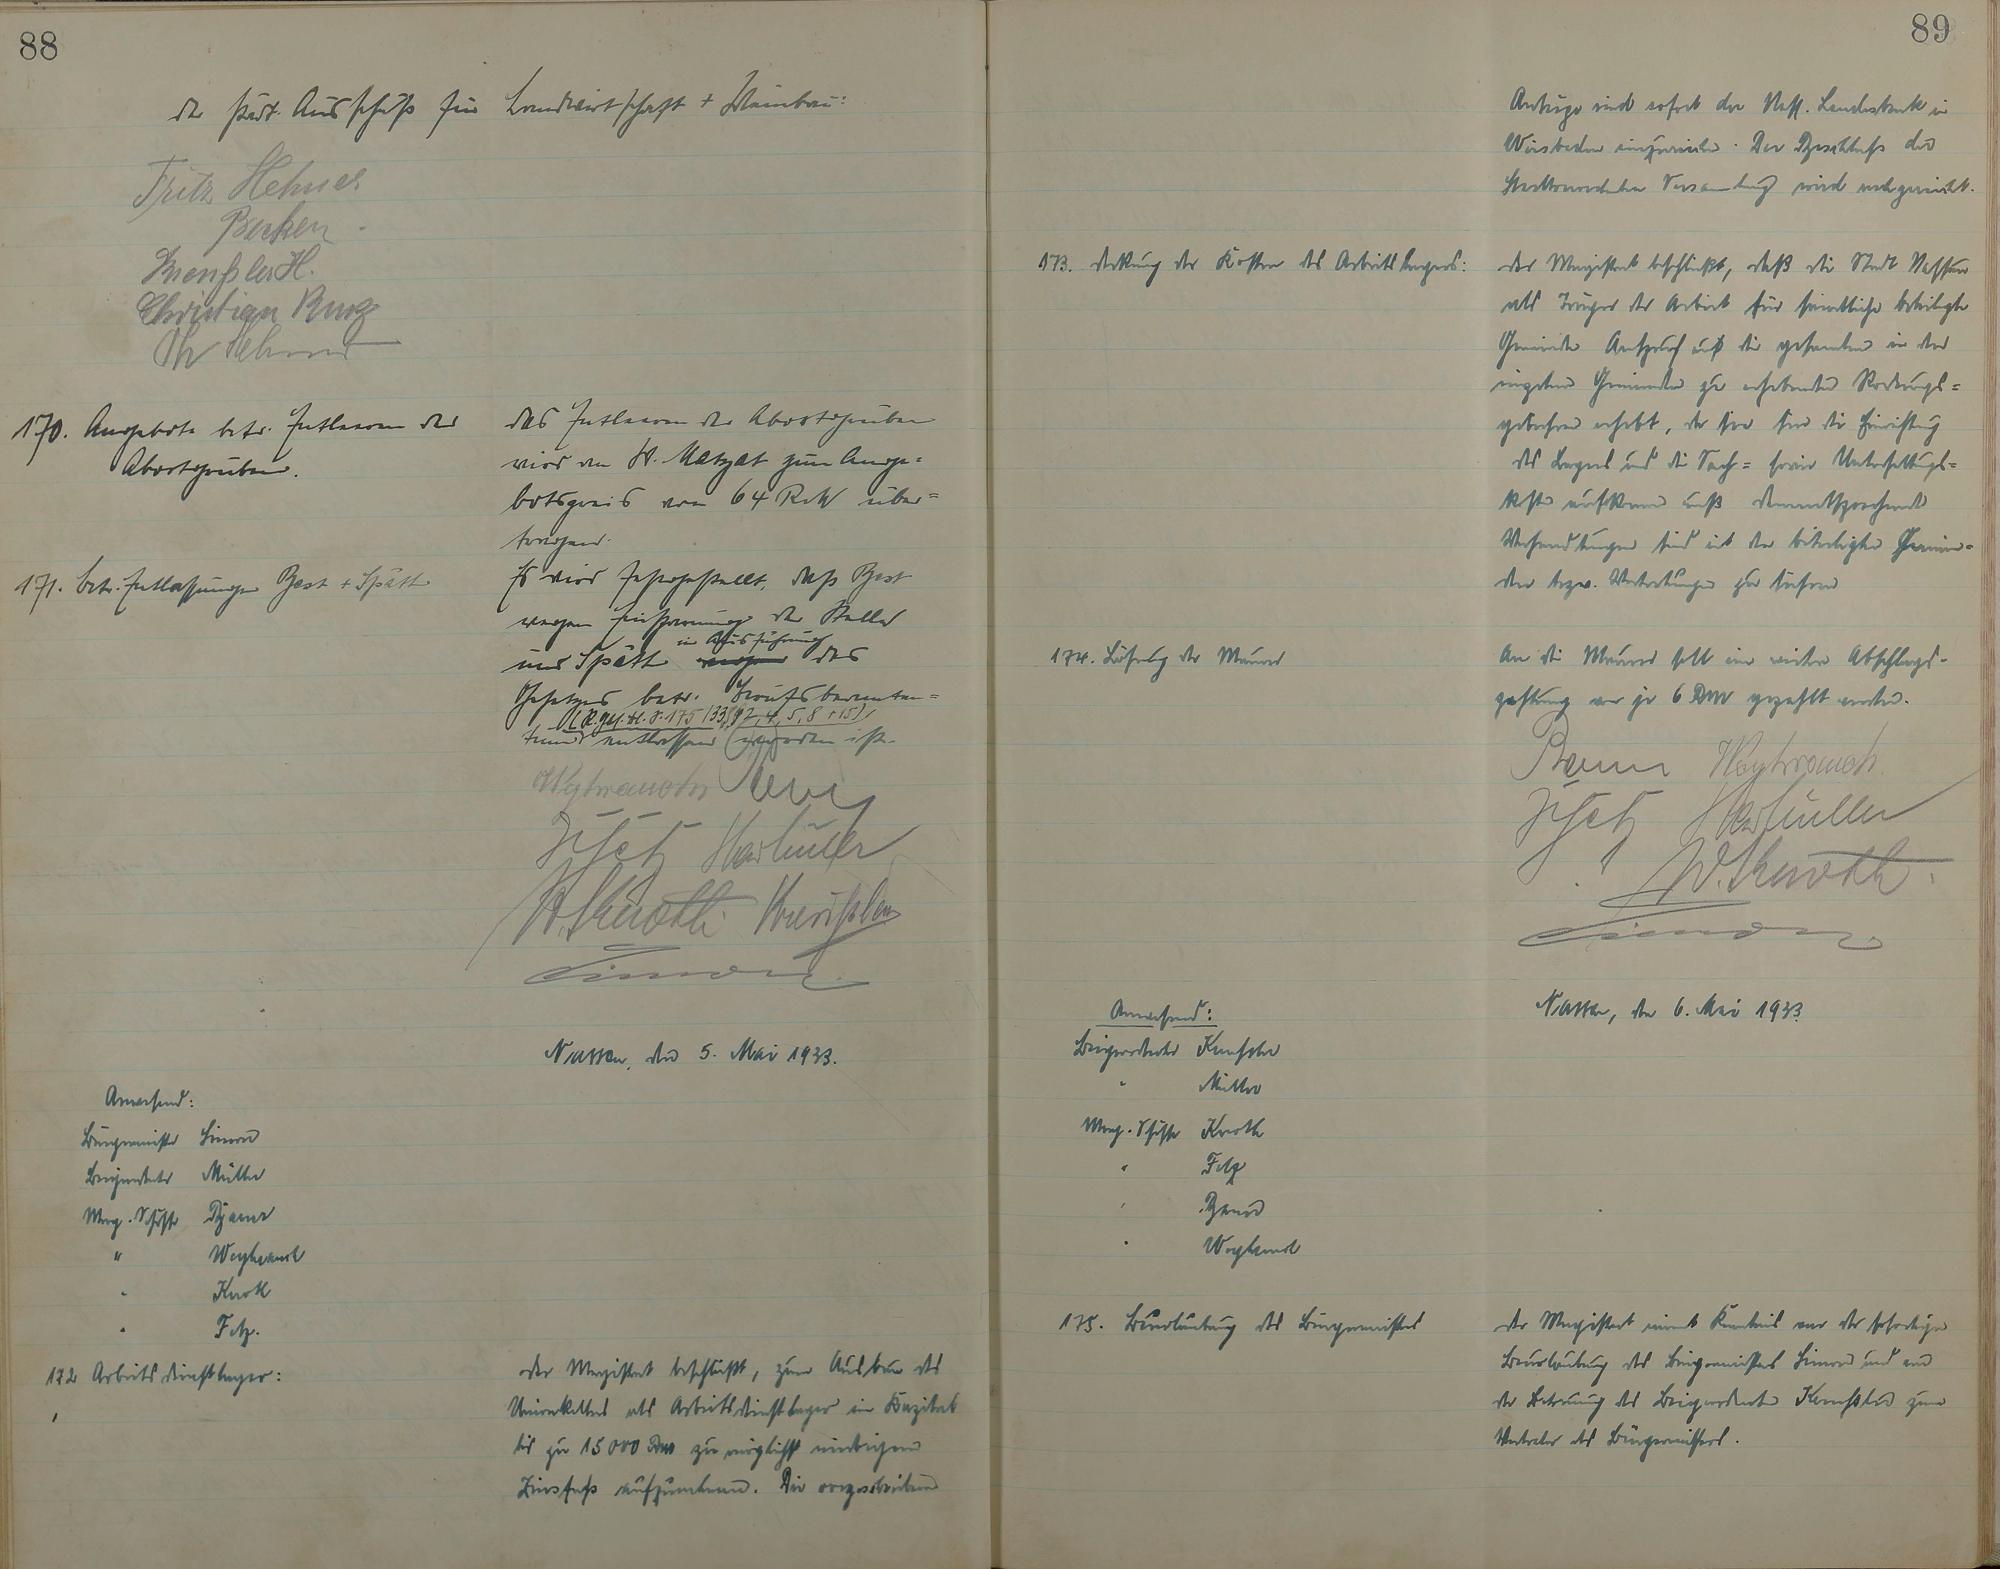 88
der städt. Ausschuss für Landwirtschaft + Weinbau:
Fritz Hehner
H.
Christian Burg
170. Angebote betr. Entleeren der
Abortgruben.
das Entleeren der Abortgruben
wird dem W. Matzat zum Ange-
botspreis von 64 RM über-
tragen.
171. betr. Entlassungen Best + Spätt
Es wird festgestellt, dass Best
wegen Einsparung der Stelle
in Ausführung
und Spätt wegen des
Gesetzes betr. Berufsbeamten-
(R.ges.bl. S. 175/33, § 2, 4, 5, 8 + 15)
tum entlassen worden ist.
Weyhrauch
Müller
W. Knoth
Simon
Nassau, den 5. Mai 1933.
Anwesend:
Bürgermeister Simon
Beigeordneter Müller
Mag. Schöffe
" Weyhrauch
" Knoth
" Fitz.
172 Arbeitsdienstlager:
der Magistrat beschließt, zum Ausbau des
als Arbeitsdienstlager ein Kapital
bis zu 15000 RM zu möglichst niedrigem
Zinsfuß aufzunehmen. Die vorgeschriebenen
89
Anträge sind sofort der Nass. Landesbank in
Wiesbaden einzureichen. Der Beschluss der
Stadtverordneten Versammlung wird nachgereicht.
173. Deckung der Kosten des Arbeitslagers:
der Magistrat beschließt, daß die Stadt Nassau
als Träger der Arbeit für sämtliche beteiligte
Gemeinden Anspruch auf die gesamten in den
einzelnen Gemeinden zu erhebenden Rodungs-
gebühren erhebt, da sie für die Einrichtung
des Lagers und die Sach- sowie Unterhaltungs-
kosten aufkommen muß. Dementsprechende
Verhandlungen sind mit den beteiligten Gemein-
den bzw. Vertretungen zu führen
174. Löhnung der Maurer
An die Maurer soll eine weitere Abschlags-
zahlung von je 6 RM gezahlt werden.
Weyhrauch
Müller
W. Knoth.
Simon
Nassau, den 6. Mai 1933.
Anwesend:
Beigeordneter
" Müller
Mag. Schöffe Knoth
" Fitz
"
" Weyhrauch
175. Beurlaubung des Bürgermeisters
der Magistrat nimmt Kenntnis von der sofortigen
Beurlaubung des Bürgermeisters Simon und von
der Betrauung des Beigeordneten zum
Vertreter des Bürgermeisters.